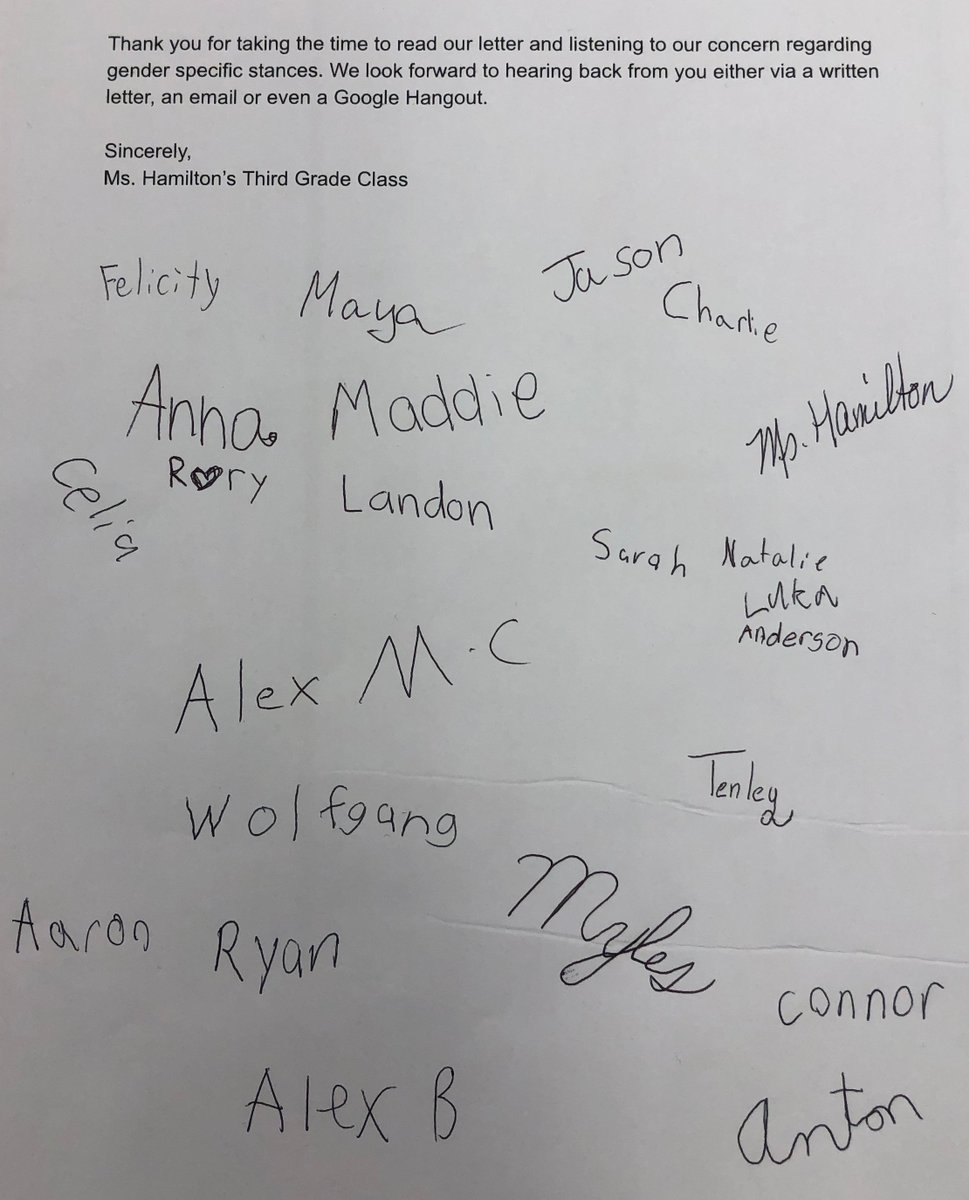 Thank you for taking the time to read our letter and listening to our concern regarding
gender specific stances. We look forward to hearing back from you either via a written
letter, an email or even a Google Hangout.
Sincerely,
Ms. Hamilton's Third Grade Class
Felicity
Maya
Jason
Charlie
Anna
Maddie
Ms. Hamilton
Celia
Rory
Landon
Sarah
Natalie
Luka
Anderson
Alex M.C
Tenley
Wolfgang
Myles
Aaron
Ryan
Connor
Alex B
Anton